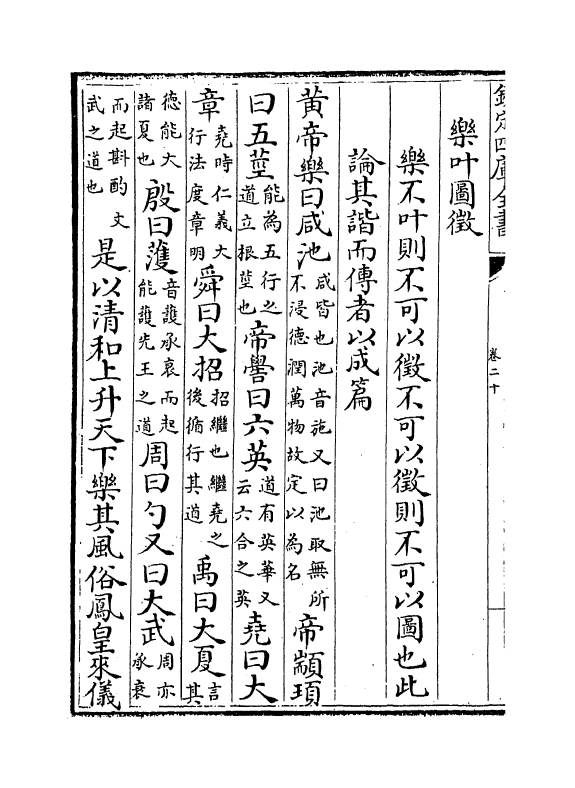 欽定四庫全書
卷二十
樂叶圖徵
樂不叶則不可以徵不可以徵則不可以圖也此
論其諧而傳者以成篇
黃帝樂曰咸池咸皆也池音施又曰池取無所不浸德潤萬物故定以為名帝顓頊
曰五莖能為五行之道立根莖也帝嚳曰六英道有英華又云六合之英堯曰大
章堯時仁義大行法度章明舜曰大招招繼也繼堯之後循行其道禹曰大夏言其
德能大諸夏也殷曰頀音護承衰而起能護先王之道周曰勺又曰大武周亦承衰
而起斟酌文武之道也是以清和上升天下樂其風俗鳳皇來儀